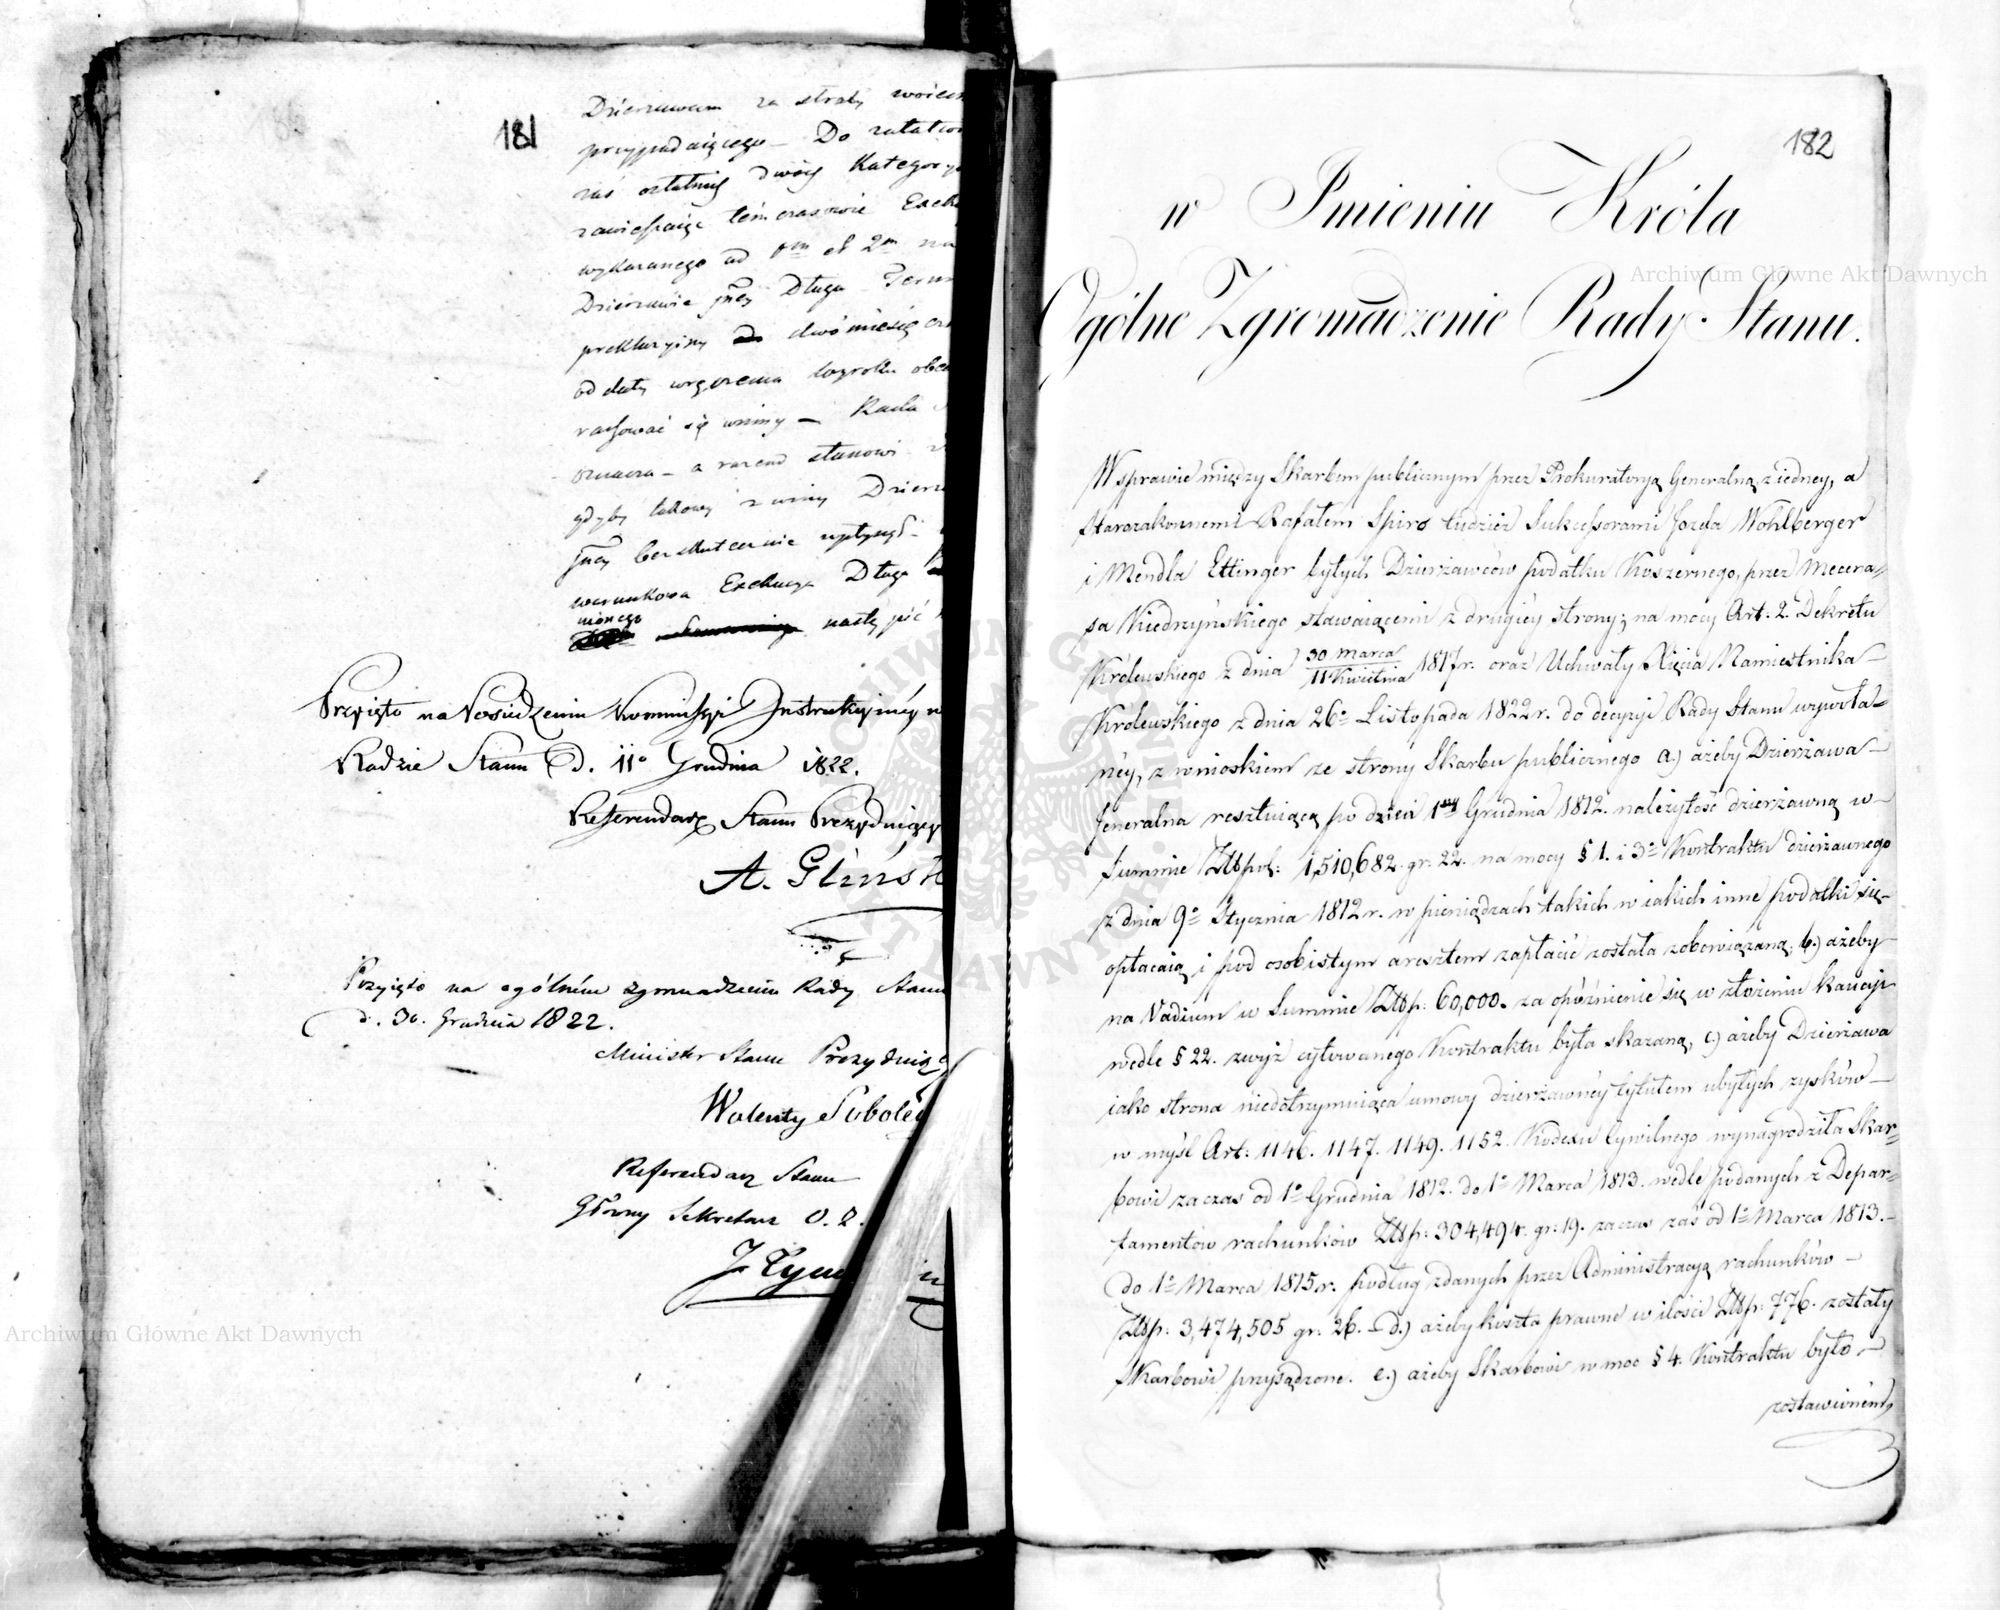 181
Dzierzawcom za straty woien
przypadaiącego – Do załatw
zaś ostatnich dwóch Kategory
zawieszaiąc tém czasowie Exek
wykazanego ad 1m et 2m na
Dzierzawie jney Długu
prekluzyiny dwómiesięczn
od daty wręczenia wyroku obec
rachować się winny – Rada
oznacza – a razem stanowi
gdyby takowy z winy Dzierz
jney bezskutecznie upłynął
warunkowa Exekucya Długu
nionego
nastąpić
Przyięto na Posiedzeniu Kommissyi Instrukcyinéy w
Radzie Stanu d. 11o Grudnia 1822.
Referendarz Stanu Prezyduiący
A. Glińsk
Przyięto na ogólném zgromadzeniu Rady Stanu
d. 30. Grudnia 1822.
Minister Stanu Prezyduią
Walenty Sobole
Referendarz Stanu
Główny Sekretarz
J Tym
182
w Imieniu Króla
Ogólne Zgromadzenie Rady Stanu.
W sprawie między Skarbem publicznym przez Prokuratoryą Generalną z iedney, a
Starozakonnemi Rafałem Spiro tudzież Sukcessorami Jozefa Wohlberger
i Mendla Ettinger byłych Dzierzawców podatku Koszernego, przez Mecena=
sa Kiedrzyńskiego stawaiącemi z drugiéy strony; na mocy Art: 2. Dekretu
Królewskiego z dnia 30 Marca/11 Kwietnia 1817 r. oraz Uchwały Xięcia Namiestnika –
Królewskiego z dnia 26o Listopada 1822 r. do decyzyi Rady Stanu wywoła=
néy, z wnioskiem ze strony Skarbu publicznego a.) ażeby Dzierżawa –
Jeneralna resztuiącą po dzień 1szy Grudnia 1812. należytość dzierżawną w –
Summie Złtpol: 1,510,682. gr. 22. na mocy § 1. i 3o Kontraktu dzierżawnego
z dnia 9o Stycznia 1812 r. w pieniądzach takich w iakich inne podatki się –
opłacaią i pod osobistym aresztem zapłacić została zobowiązaną; b.) ażeby
na Vadium w Summie Złtp: 60,000. za opóźnienie się w złożeniu kaucyi
wedle § 22. zwyż cytowanego Kontraktu była skazaną, c.) ażeby Dzierżawa
iako strona niedotrzymuiąca umowy dzierżawnéy tytułem ubyłych zysków –
w myśl Art: 1146. 1147. 1149. 1152. Kodexu Cywilnego wynagrodziła Skar=
bowi za czas od 1o Grudnia 1812. do 1o Marca 1813. wedle podanych z Depar=
tamentów rachunków Złtp: 304,494. gr: 19. za czas zaś od 1o Marca 1813. –
do 1o Marca 1815 r. podług zdanych przez Administracyą rachunków –
Złtp: 3,474,505 gr: 26. – d.) ażeby koszta prawne w ilości Złtp: 776. zostały
Skarbowi przysądzone. e.) ażeby Skarbowi w moc § 4. Kontraktu było –
zostawioném,
Archiwum Główne Akt Dawnych
Archiwum Główne Akt Dawnych
ARCHIWUM GŁÓWNE AKT DAWNYCH